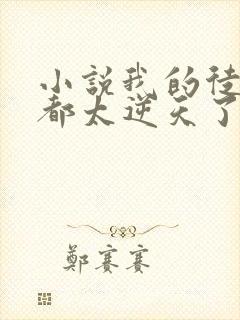 小說我的徒
都太逆天了
鄭賽賽